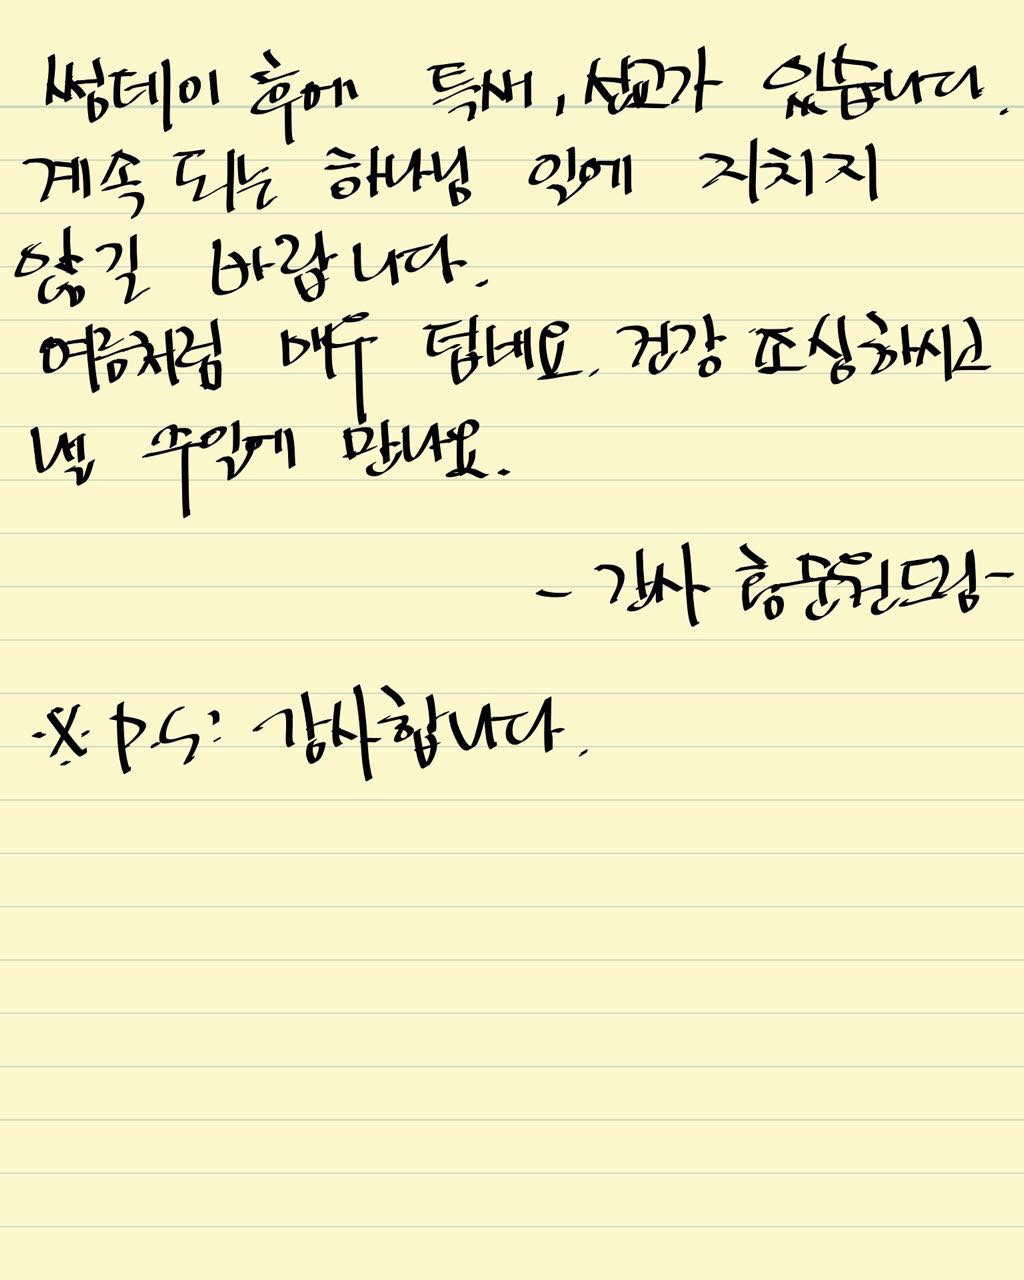 썸데이 후에 특새, 선교가 있습니다.
계속 되는 하나님 일에 지치지
않길 바랍니다.
여름처럼 매우 덥네요. 건강 조심하시고
낼 주일에 만나요.
- 간사 황준원드림-
※ P.S: 감사합니다.